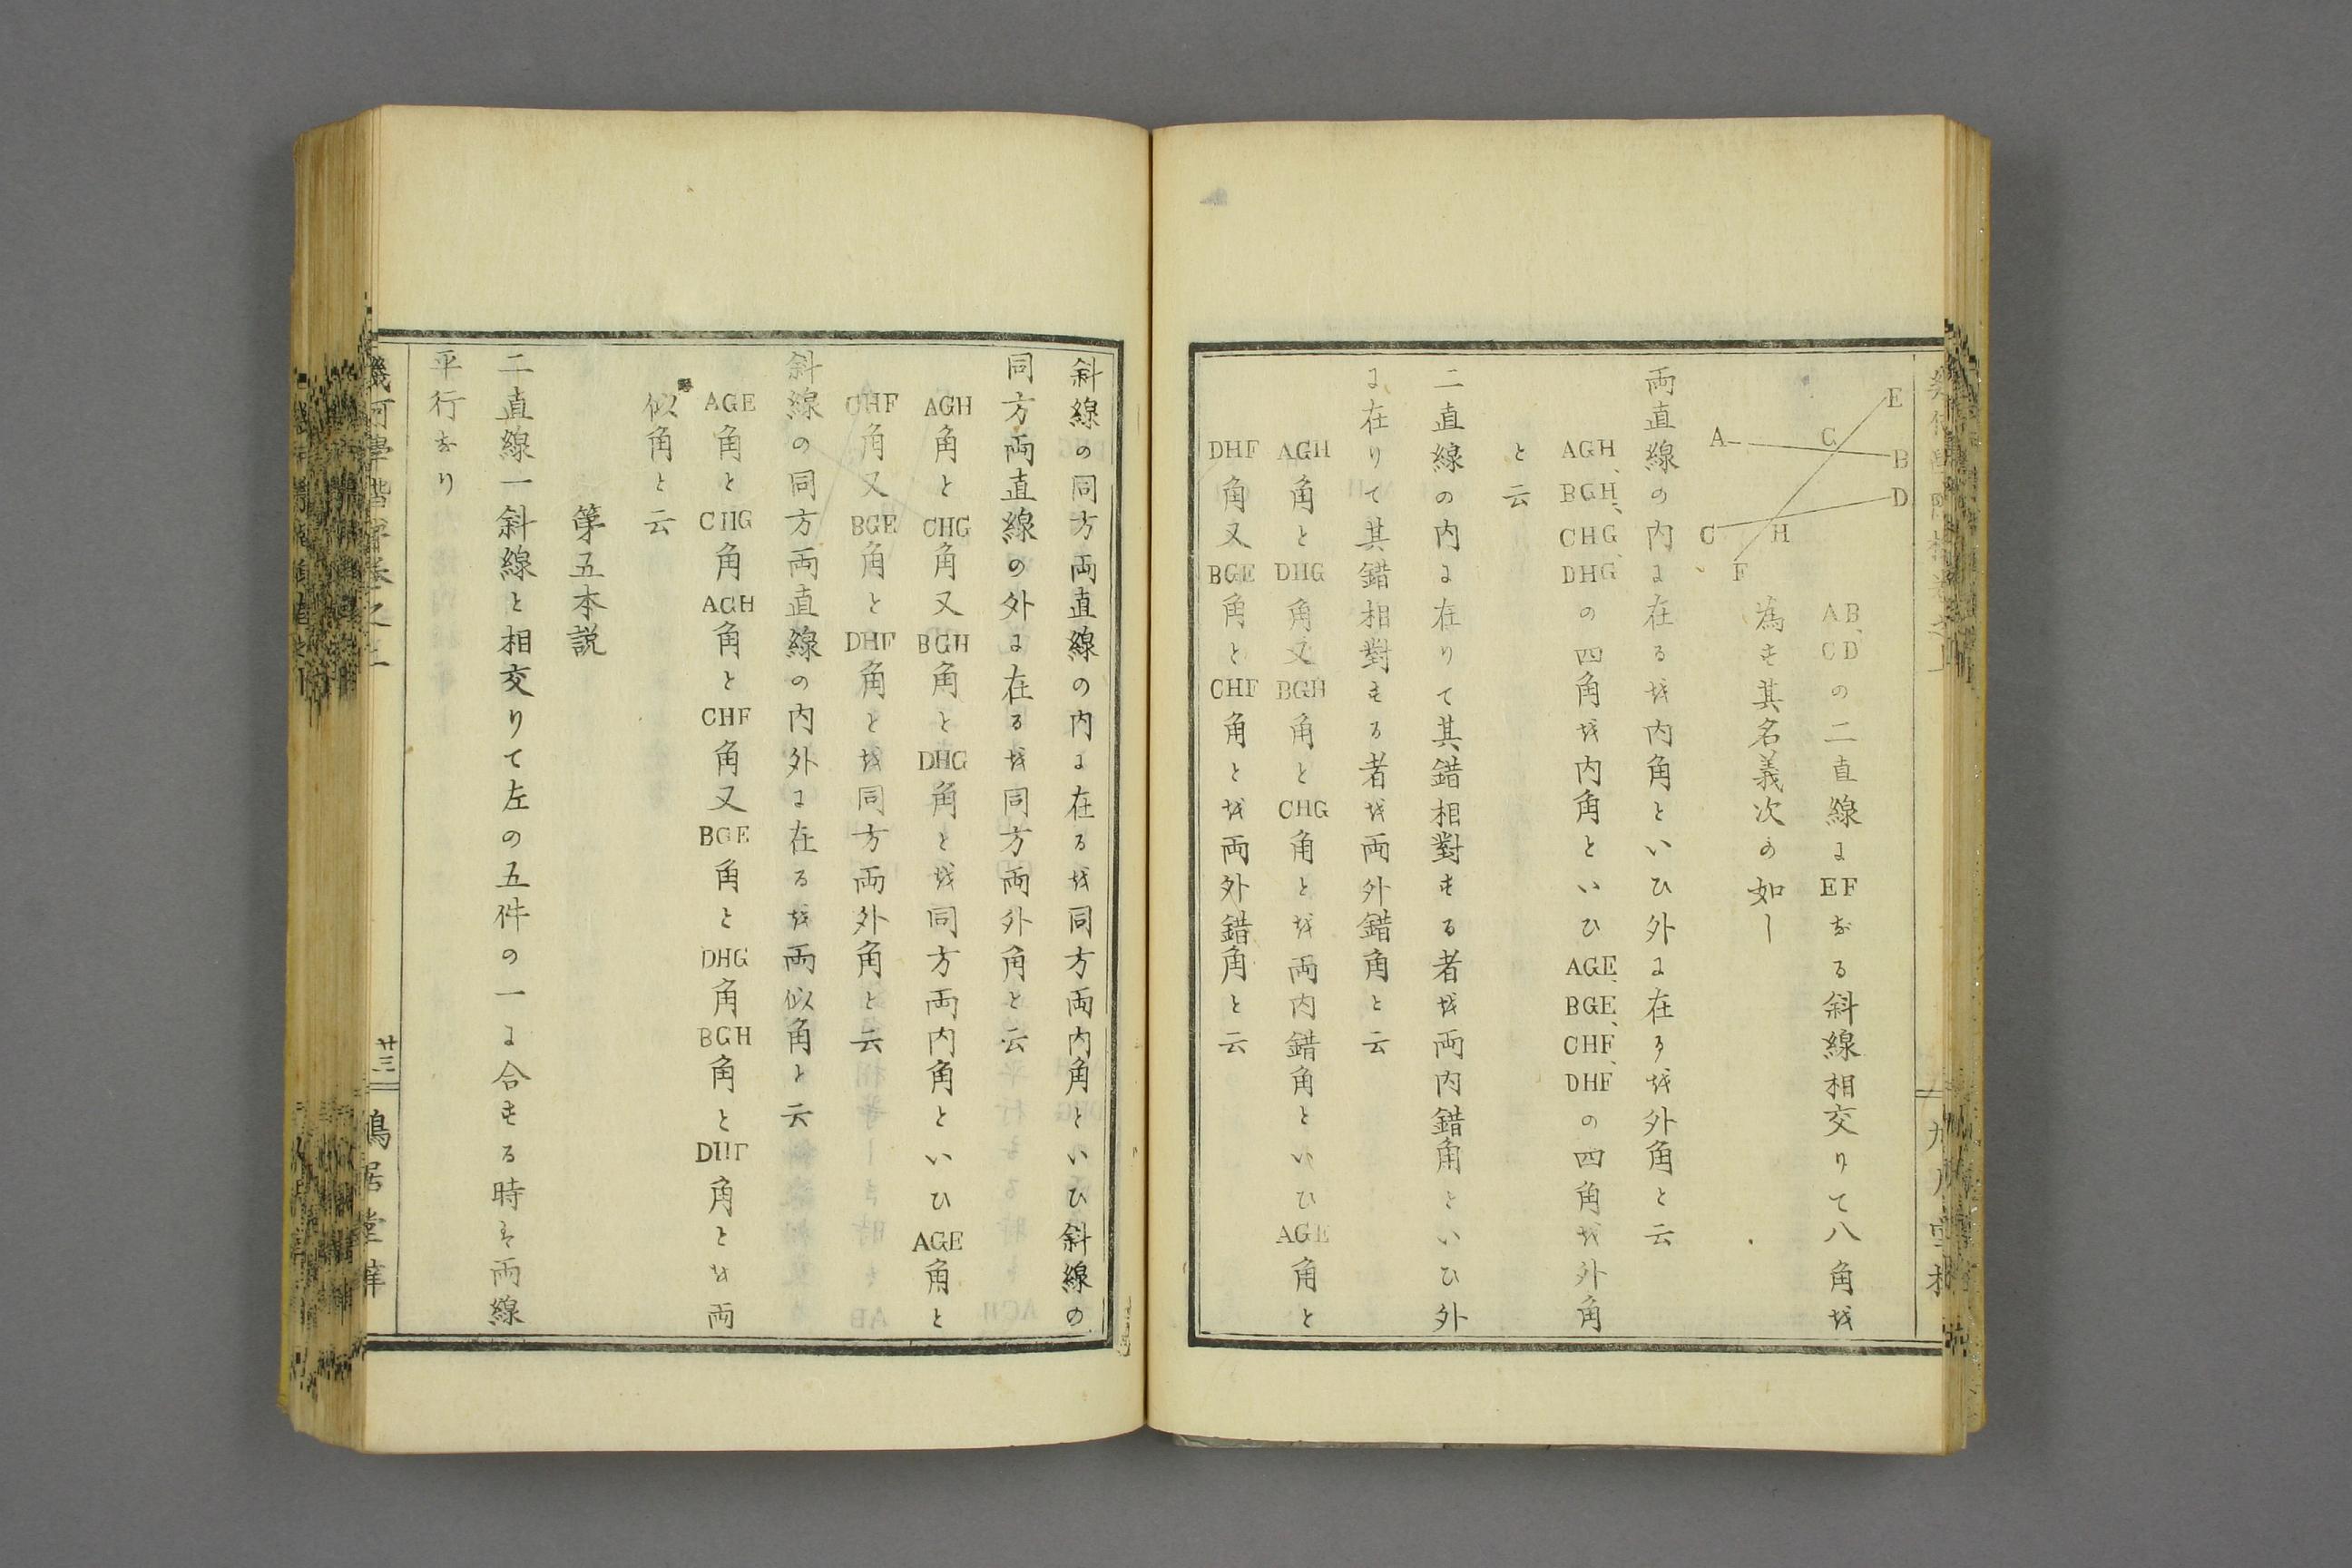 E
A
G
B
D
C
H
F
AB、CDの二直線にEFなる斜線相交りて八角を
為す其名義次の如し
両直線の内に在るを内角といひ外に在るを外角と云
AGH、BGH、CHG、DHGの四角を内角といひAGE、BGE、CHF、DHFの四角を外角
と云
二直線の内に在りて其錯相對する者を両内錯角といひ外
に在りて其錯相對する者を両外錯角と云
AGH角とDHG角又BGH角とCHG角とを両内錯角といひAGE角と
DHF角又BGE角とCHF角とを両外錯角と云
斜線の同方両直線の内に在るを同方両内角といひ斜線の
同方両直線の外に在るを同方両外角と云
AGH角とCHG角又BGH角とDHG角とを同方両内角といひAGE角と
CHF角又BGE角とDHF角とを同方両外角と云
斜線の同方両直線の内外に在るを両似角と云
AGE角とCHG角AGH角とCHF角又BGE角とDHG角BGH角とDHF角とを両
似角と云
第五本説
二直線一斜線と相交りて左の五件の一に合する時は両線
平行なり
幾何學階梯卷之上
廿三